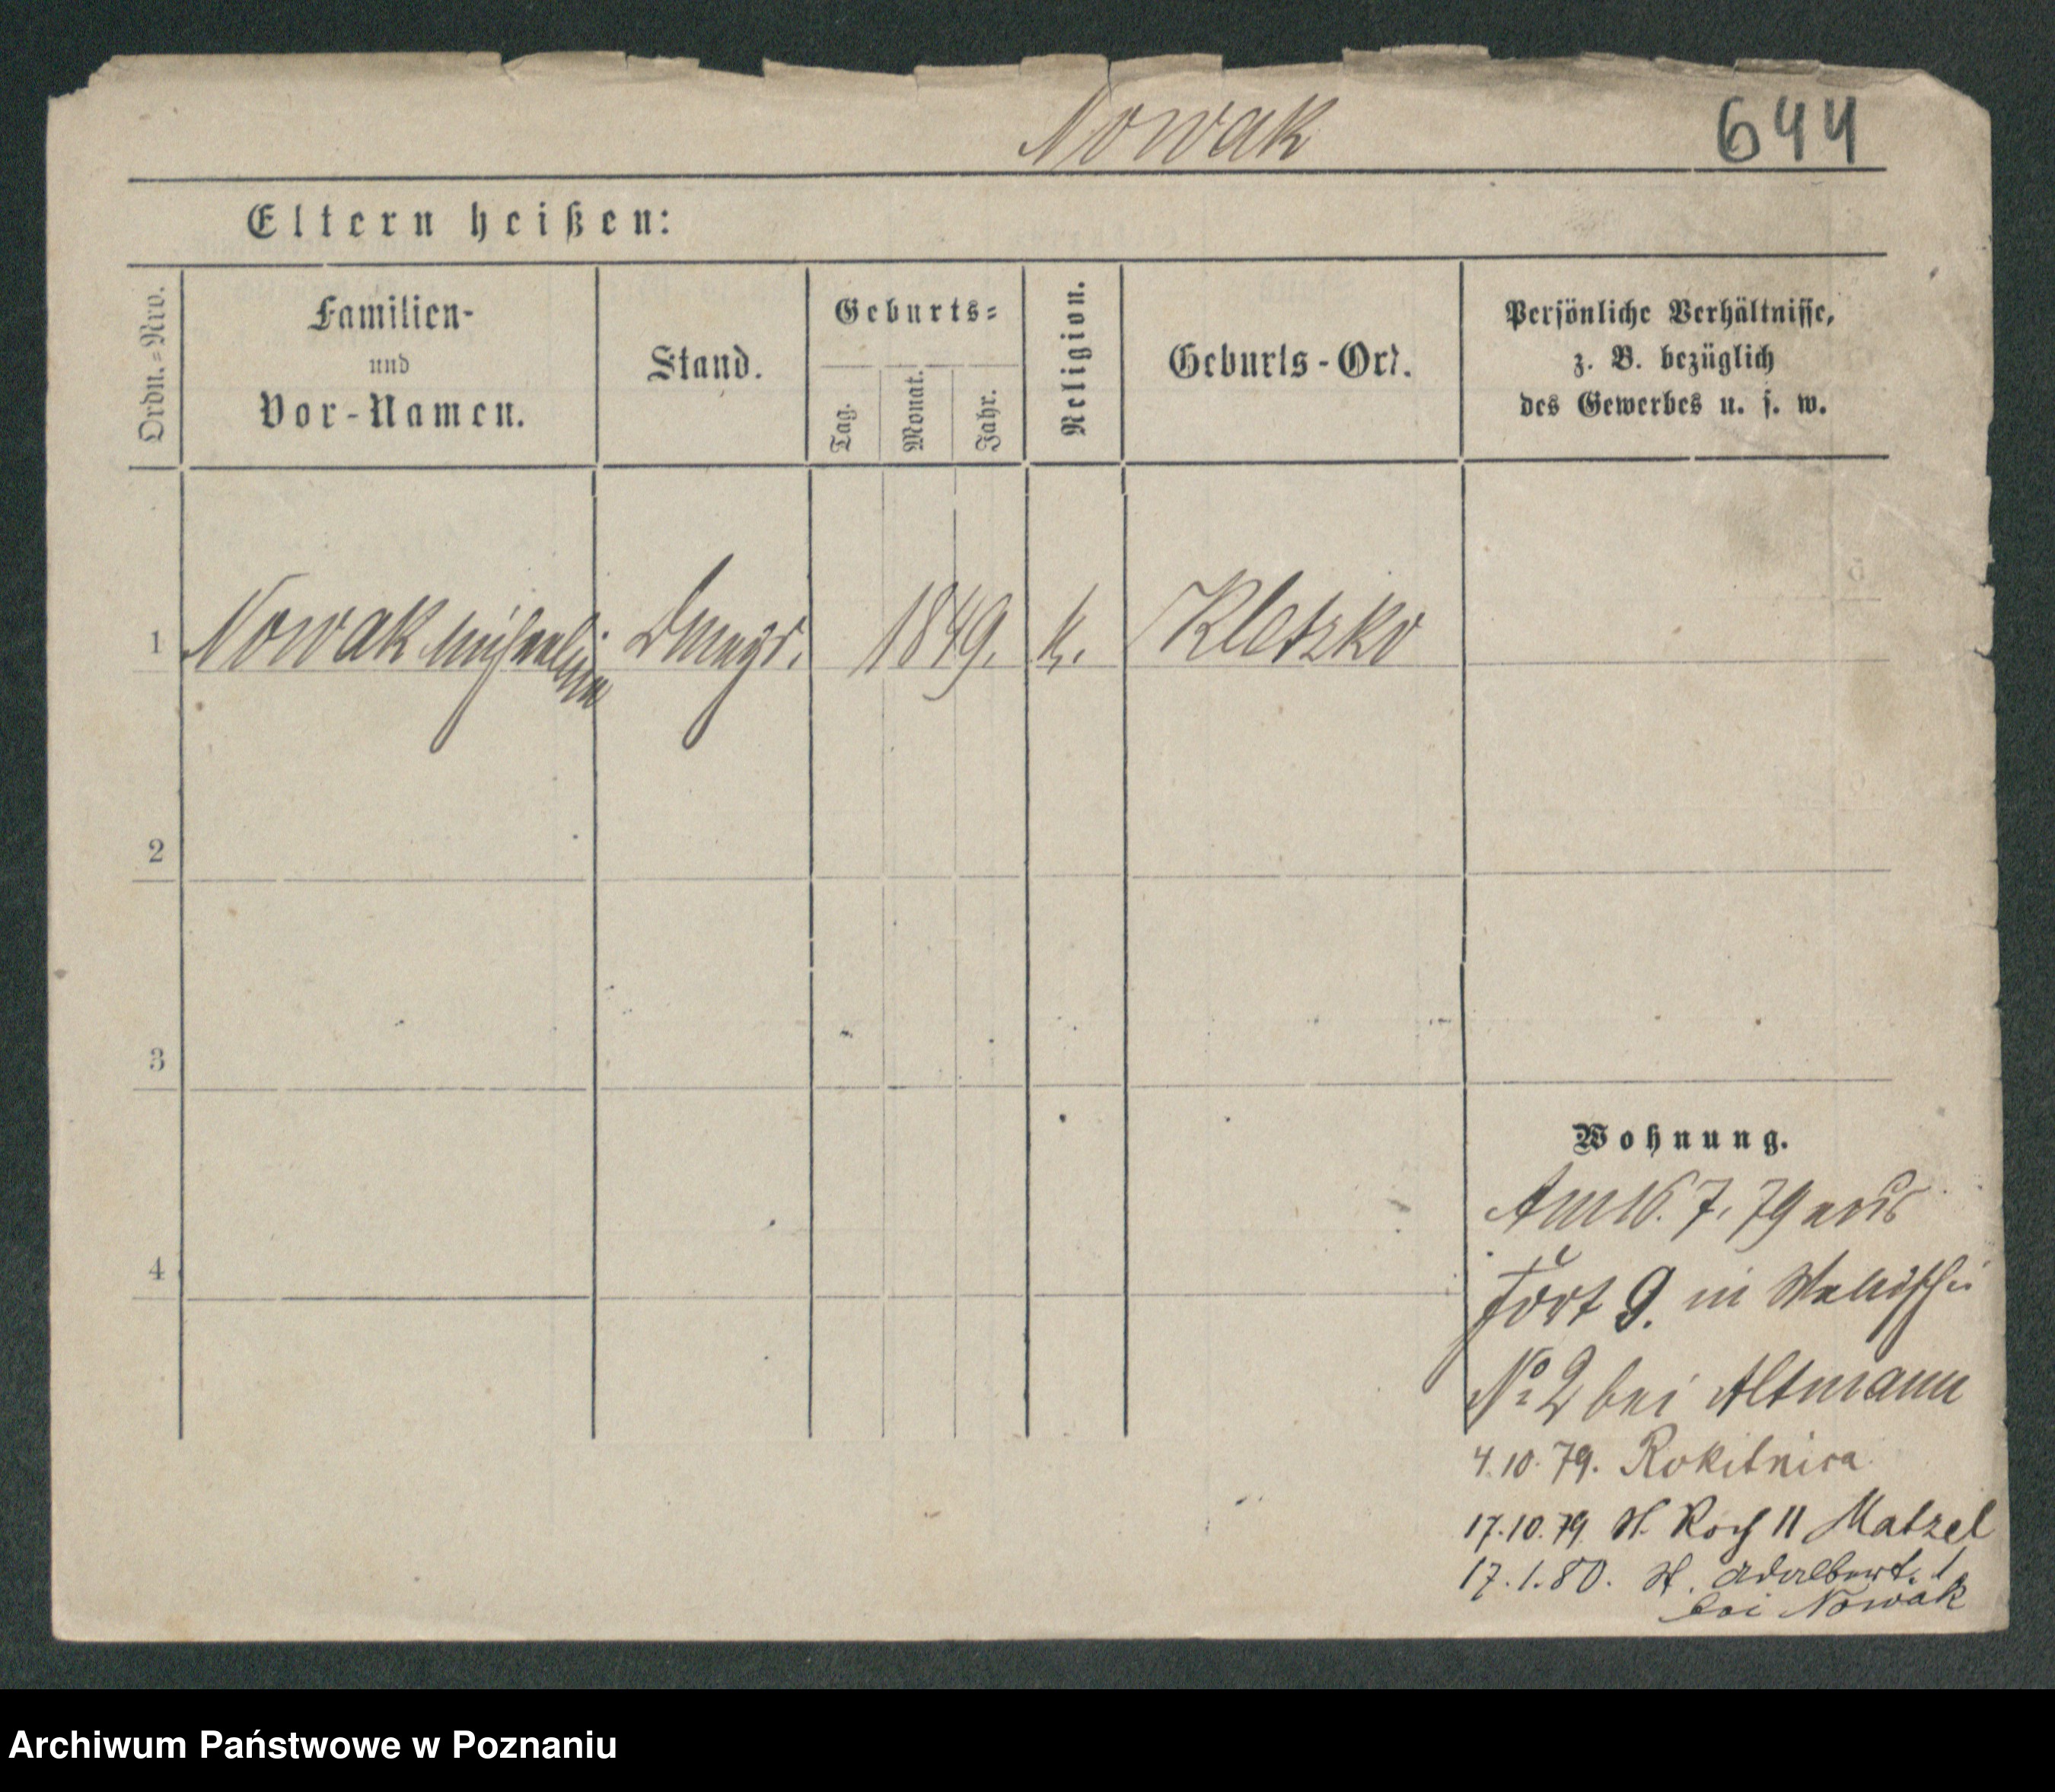 Nowak
644
Eltern heißen:
Ordn.=Nro.
Familien-
und
Vor-Namen.
Stand.
Geburts=
Tag.
Monat.
Jahr.
Religion.
Geburts-Ort.
Persönliche Verhältnisse,
z. B. bezüglich
des Gewerbes u. s. w.
1 Nowak 1849. k. Kletzko
2
3
4
Wohnung.
Am 16. 7. 79 aus
Fort 9. in
No 2 bei Altmann
4.10.79. Rokitnica
17.10.79 St. Roch 11 Matzel
17.1.80. St. Adalbert. 1
bei Nowak
Archiwum Państwowe w Poznaniu